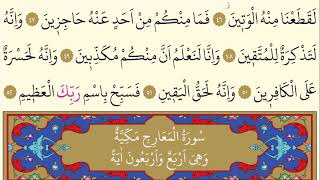 لَقَطَعْنَا مِنْهُ الْوَتِينَۘ ﴿٤٦﴾ فَمَا مِنْكُمْ مِنْ اَحَدٍ عَنْهُ حَاجِزِينَ ﴿٤٧﴾ وَاِنَّهُ
لَتَذْكِرَةٌ لِلْمُتَّقِينَ ﴿٤٨﴾ وَاِنَّا لَنَعْلَمُ اَنَّ مِنْكُمْ مُكَذِّبِينَ ﴿٤٩﴾ وَاِنَّهُ لَحَسْرَةٌ
عَلَى الْكَافِرِينَ ﴿٥٠﴾ وَاِنَّهُ لَحَقُّ الْيَقِينِ ﴿٥١﴾ فَسَبِّحْ بِاسْمِ رَبِّكَ الْعَظِيمِ ﴿٥٢﴾
سُورَةُ الْمَعَارِجِ مَكِّيَّةٌ
وَهِيَ اَرْبَعٌ وَاَرْبَعُونَ اٰيَةً